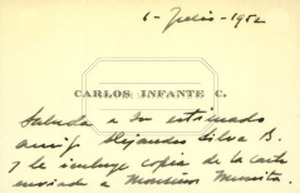 6 - Julio - 1952
CARLOS INFANTE C.
Saluda a su estimado
amigo Alejandro Silva B.
y le incluye copia de la carta
enviada a Monsieur